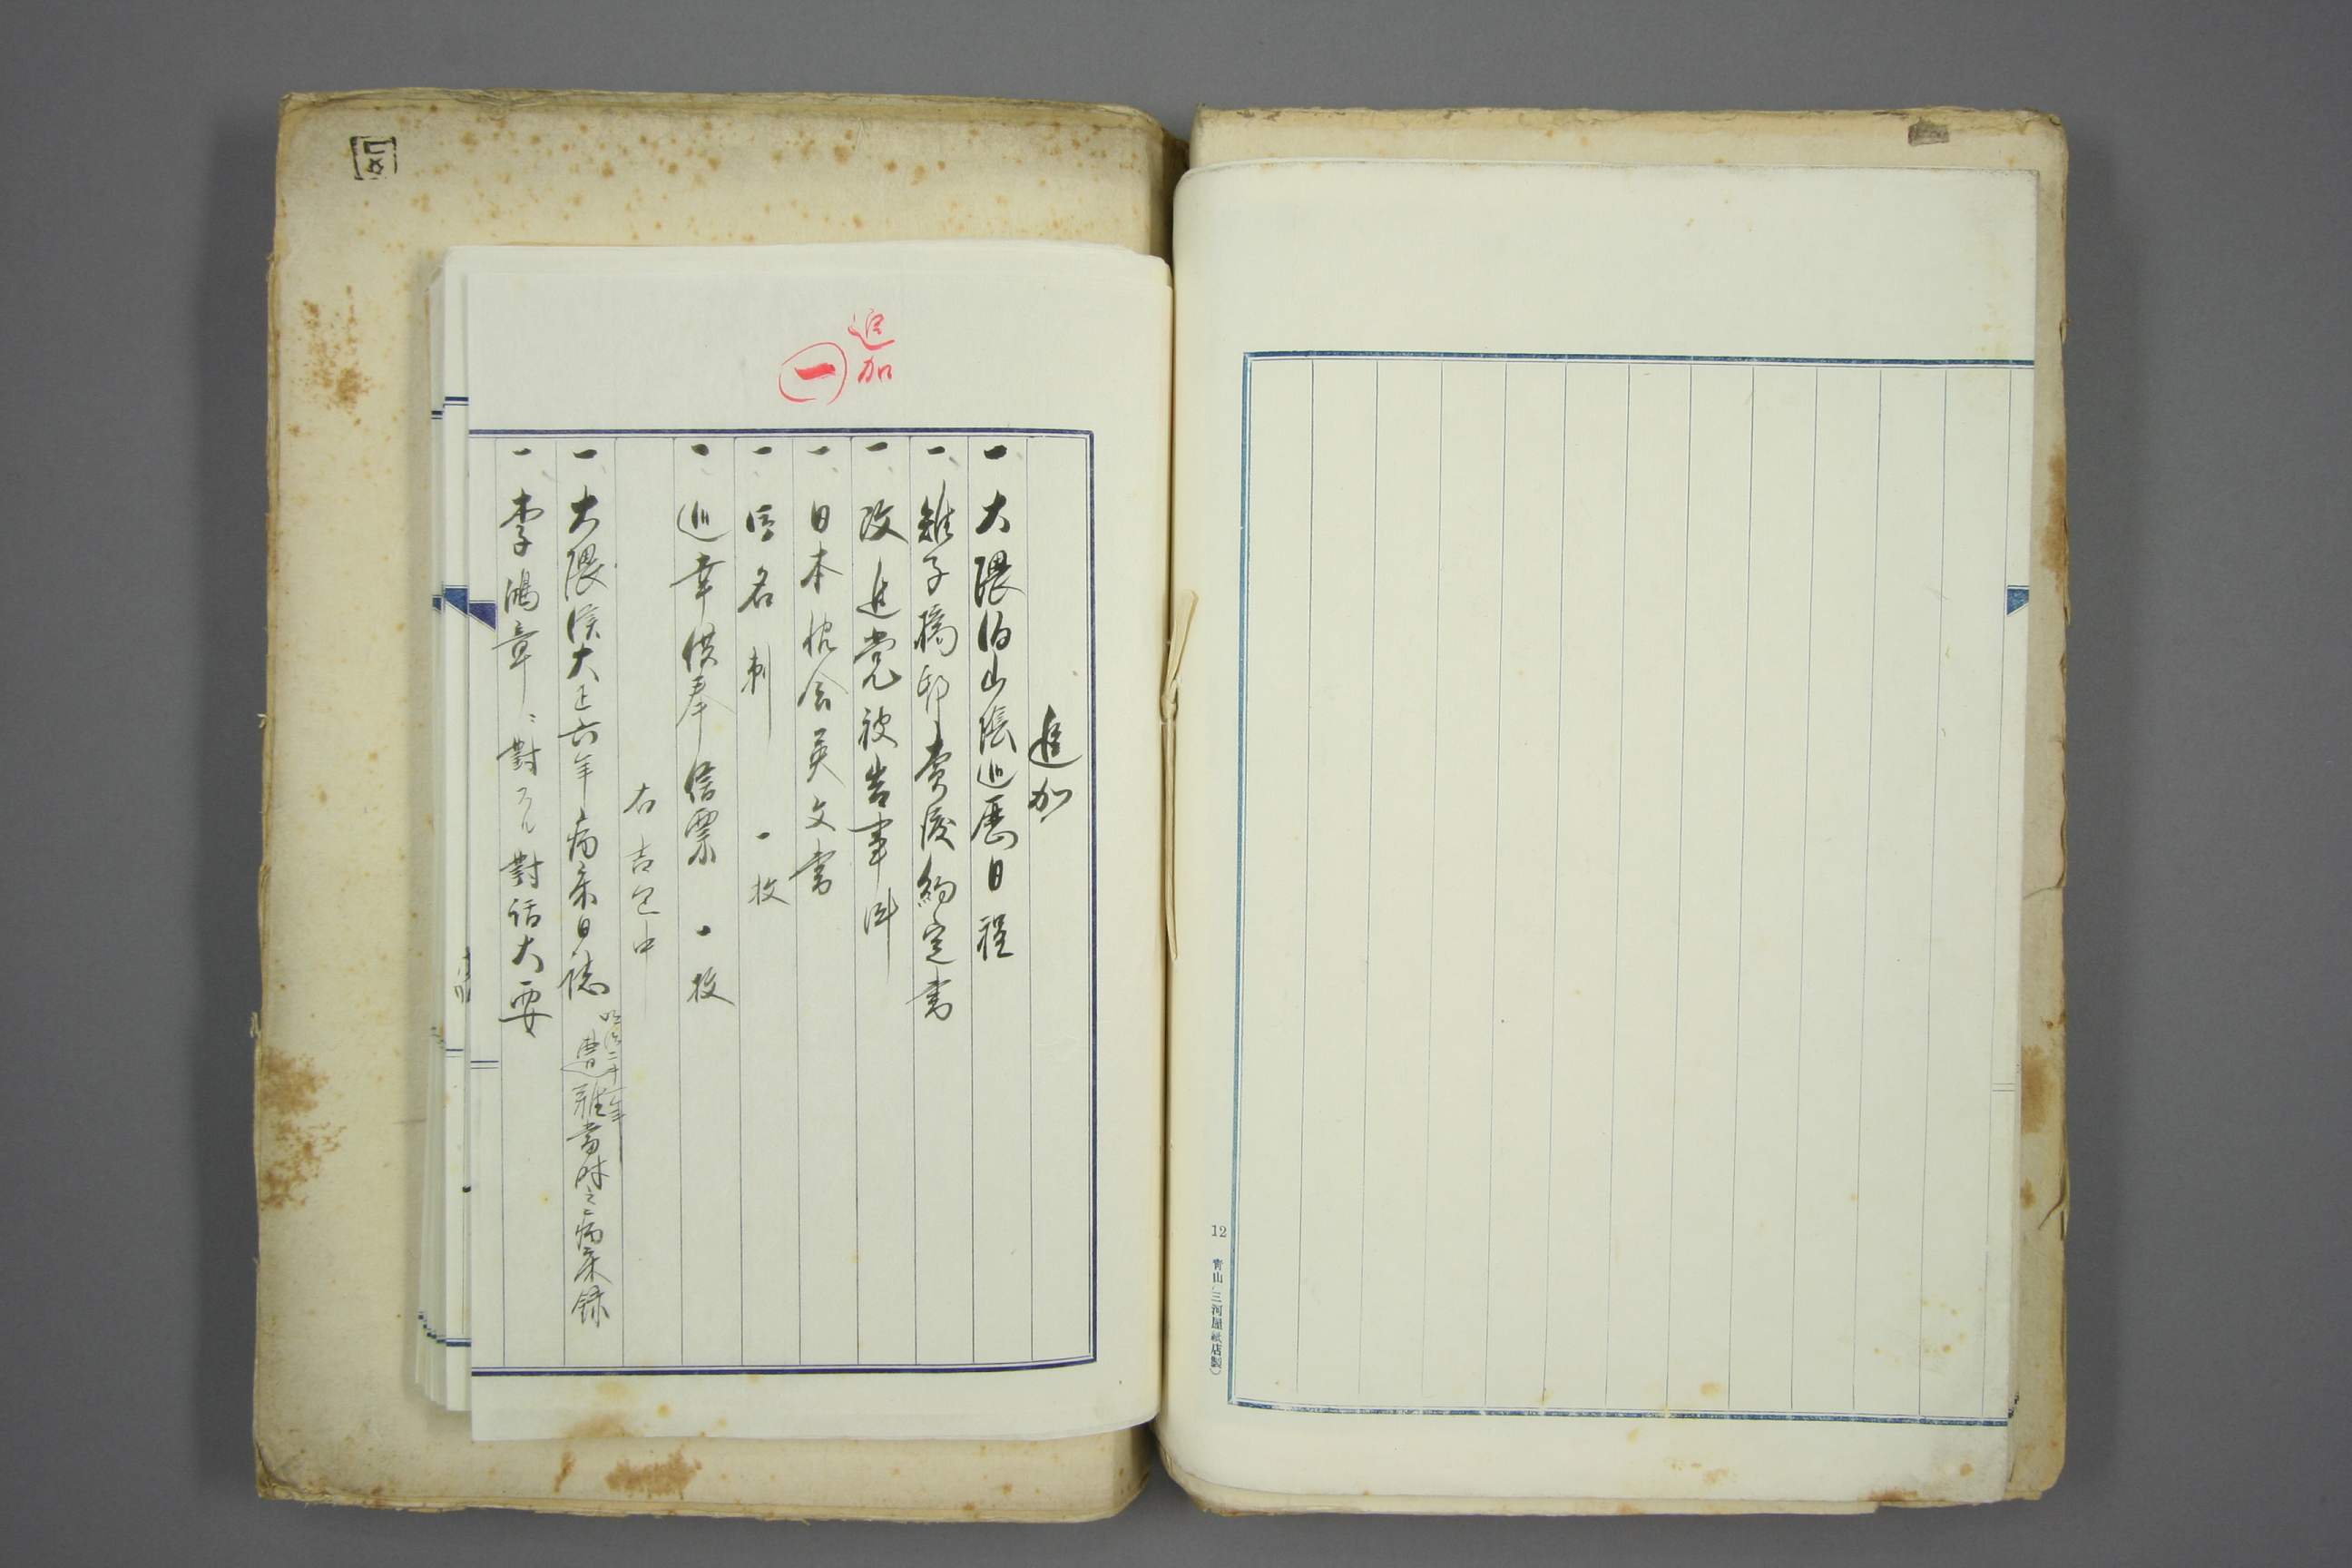 12
青山(三河屋紙店製)
追加
一
追加
一、大隈伯山陰巡歴日程
一、雉子橋邸売渡約定書
一、改進党被告事件
一、日本協会英文書
一、名刺 一枚
一、巡幸供奉信票 一枚
右 中
一、大隈侯大正六年病床日誌 明治二十二年遭難當時之病床録
一、李鴻章ニ對スル對話大要